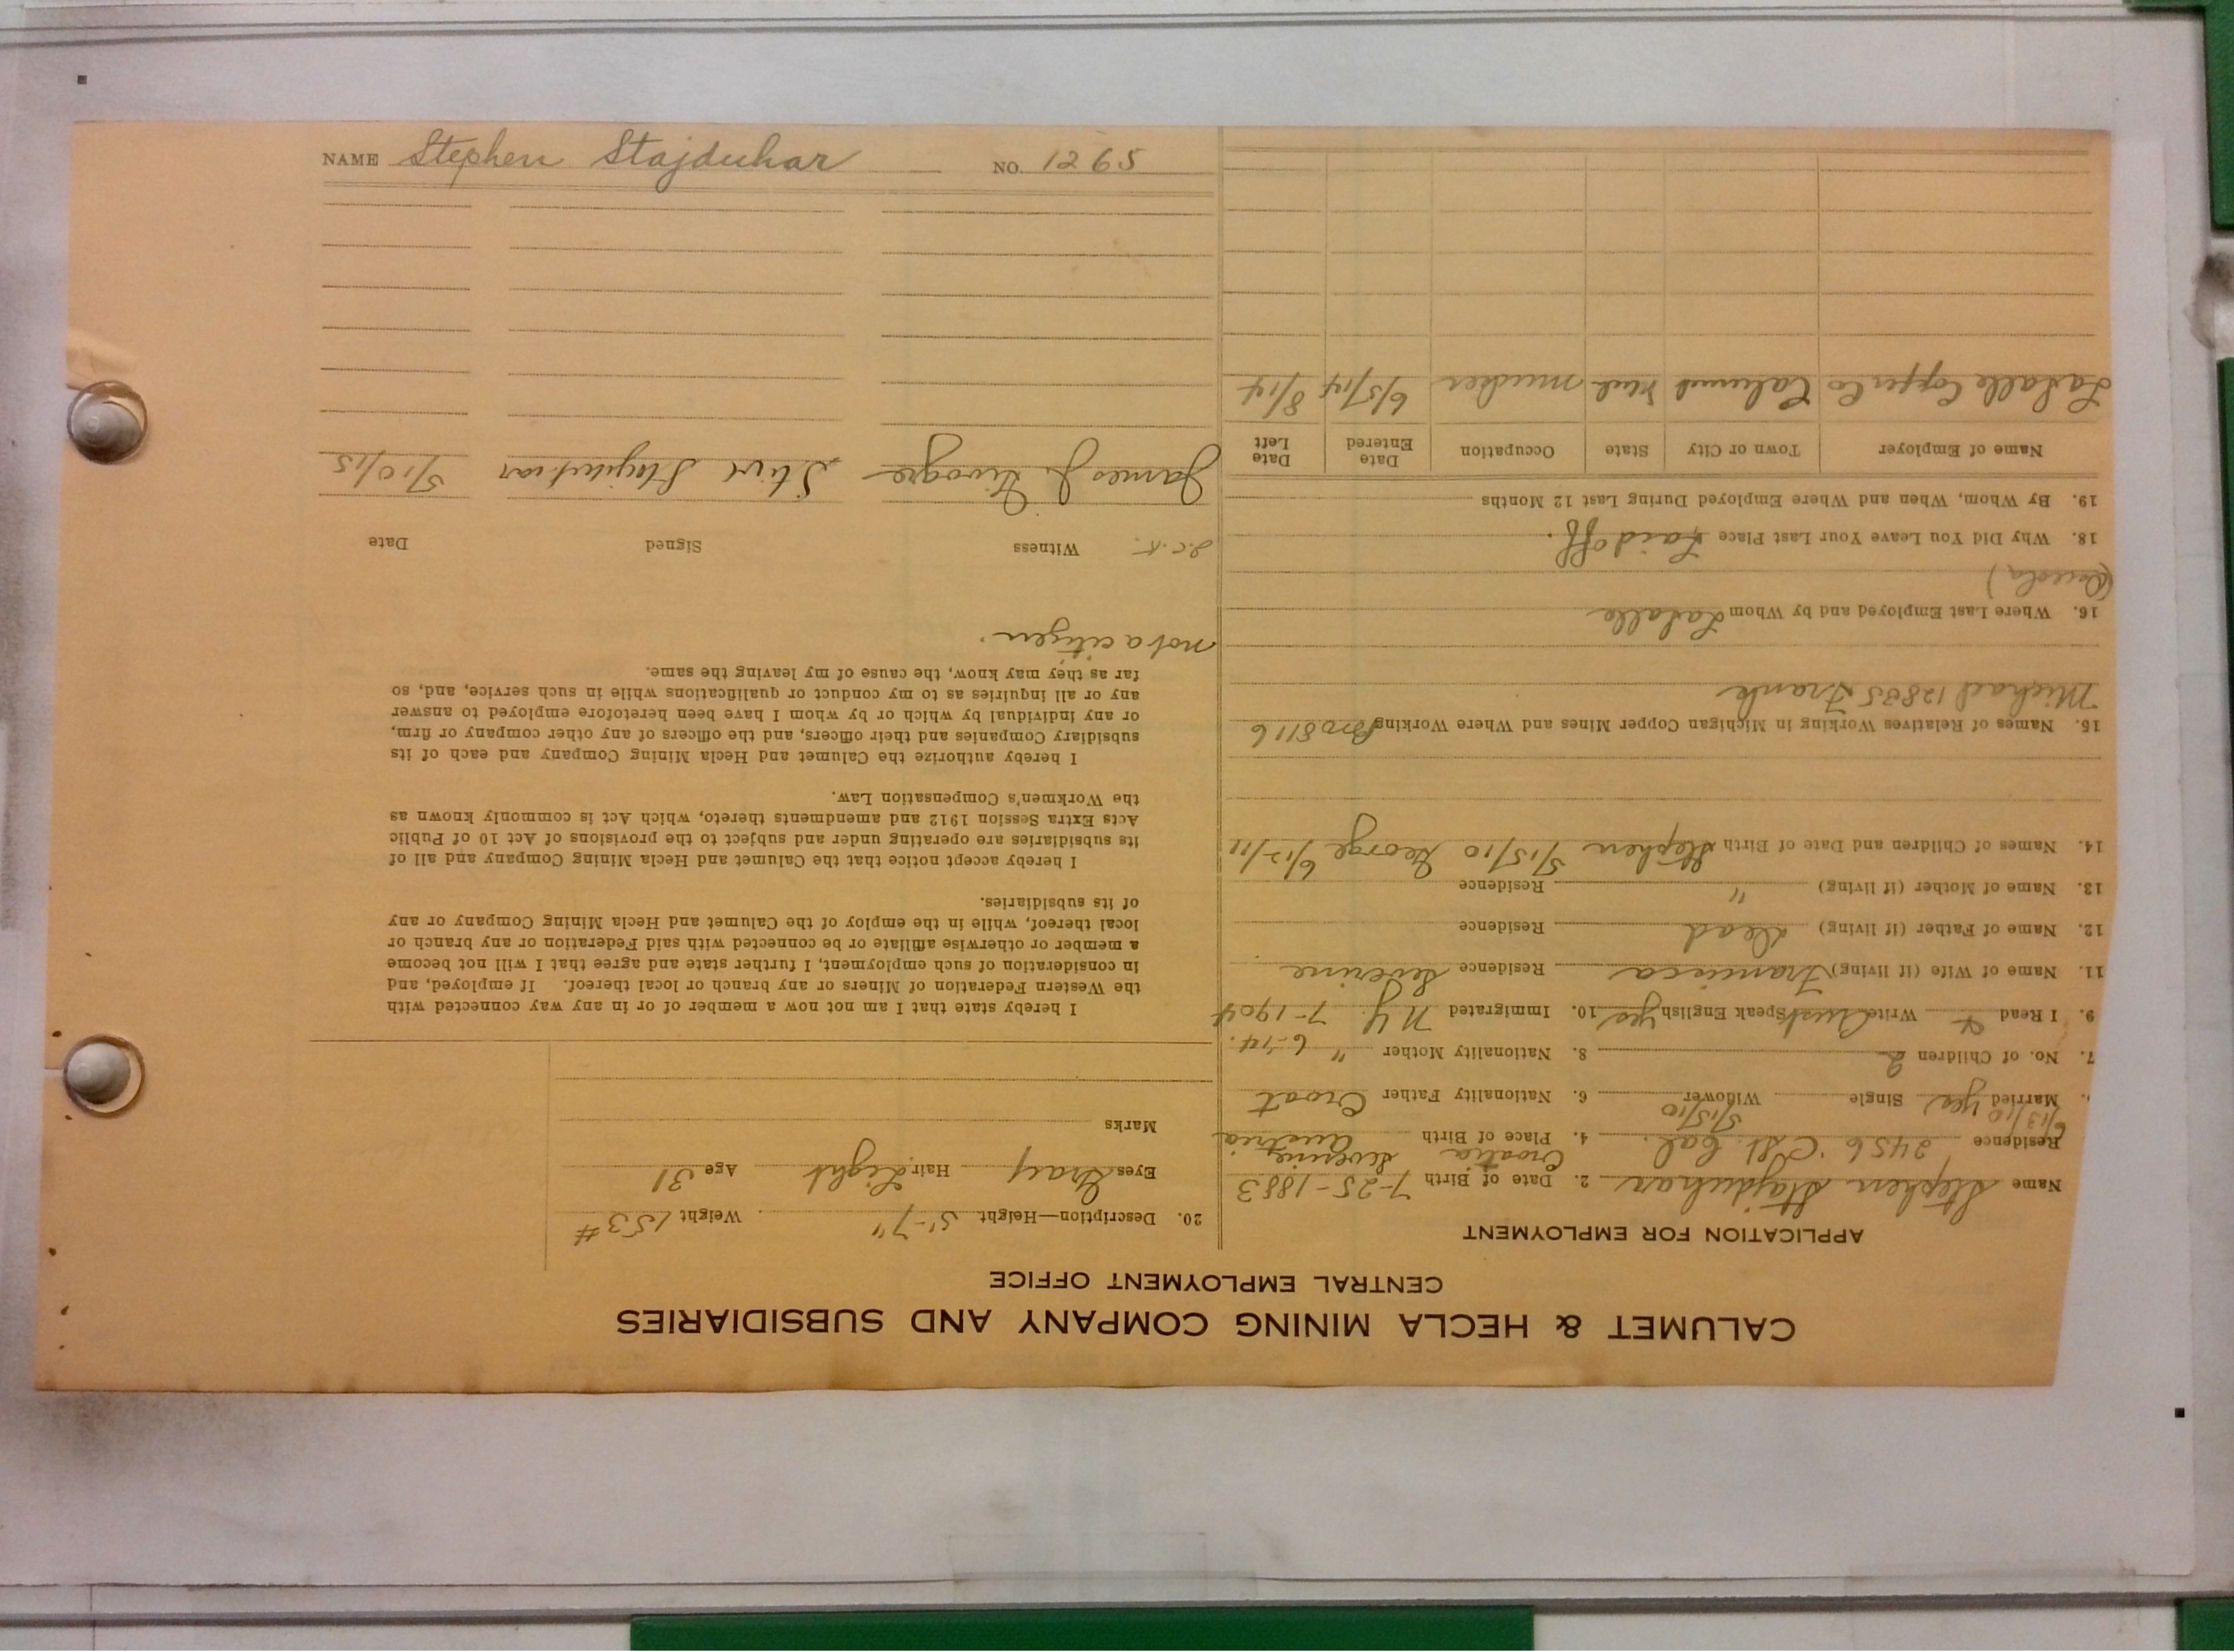 NAME Stephen Stajduhar NO. 1265
CALUMET & HECLA MINING COMPANY AND SUBSIDIARIES
CENTRAL EMPLOYMENT OFFICE
APPLICATION FOR EMPLOYMENT
Name Stephen Stajduhar 2. Date of Birth 7-25-1883
Croatia Severine
Residence 2456 C St. Cal. 4. Place of Birth Austria
6/13/10 5/15/10
Married yes Single Widower 6. Nationality Father Croat
7. No. of Children 2 8. Nationality Mother " 6-14.
9. I Read & Write Aust Speak English yes 10. Immigrated N.Y. 7-1904
11. Name of Wife (if living) Francica Residence Severine
12. Name of Father (if living) Dead Residence
13. Name of Mother (if living) " Residence
14. Names of Children and Date of Birth Stephen 5/15/10 George 6/12/11
15. Names of Relatives Working in Michigan Copper Mines and Where Working Bro 8116
Michael 12835 Frank
16. Where Last Employed and by Whom LaSalle
(Osceola)
18. Why Did You Leave Your Last Place Laid off.
19. By Whom, When and Where Employed During Last 12 Months
Name of Employer Town or City State Occupation Date Entered Date Left
LaSalle Copper Co Calumet Mich mucker 6/5/14 8/14
20. Description—Height 5'-7" Weight 153#
Eyes Gray Hair Light Age 31
Marks
I hereby state that I am not now a member of or in any way connected with
the Western Federation of Miners or any branch or local thereof. If employed, and
in consideration of such employment, I further state and agree that I will not become
a member or otherwise affiliate or be connected with said Federation or any branch or
local thereof, while in the employ of the Calumet and Hecla Mining Company or any
of its subsidiaries.
I hereby accept notice that the Calumet and Hecla Mining Company and all of
its subsidiaries are operating under and subject to the provisions of Act 10 of Public
Acts Extra Session 1912 and amendments thereto, which Act is commonly known as
the Workmen's Compensation Law.
I hereby authorize the Calumet and Hecla Mining Company and each of its
subsidiary Companies and their officers, and the officers of any other company or firm,
or any individual by which or by whom I have been heretofore employed to answer
any or all inquiries as to my conduct or qualifications while in such service, and, so
far as they may know, the cause of my leaving the same.
not a citizen.
Witness Signed Date
James J. Stive Stajduhar 5/10/15